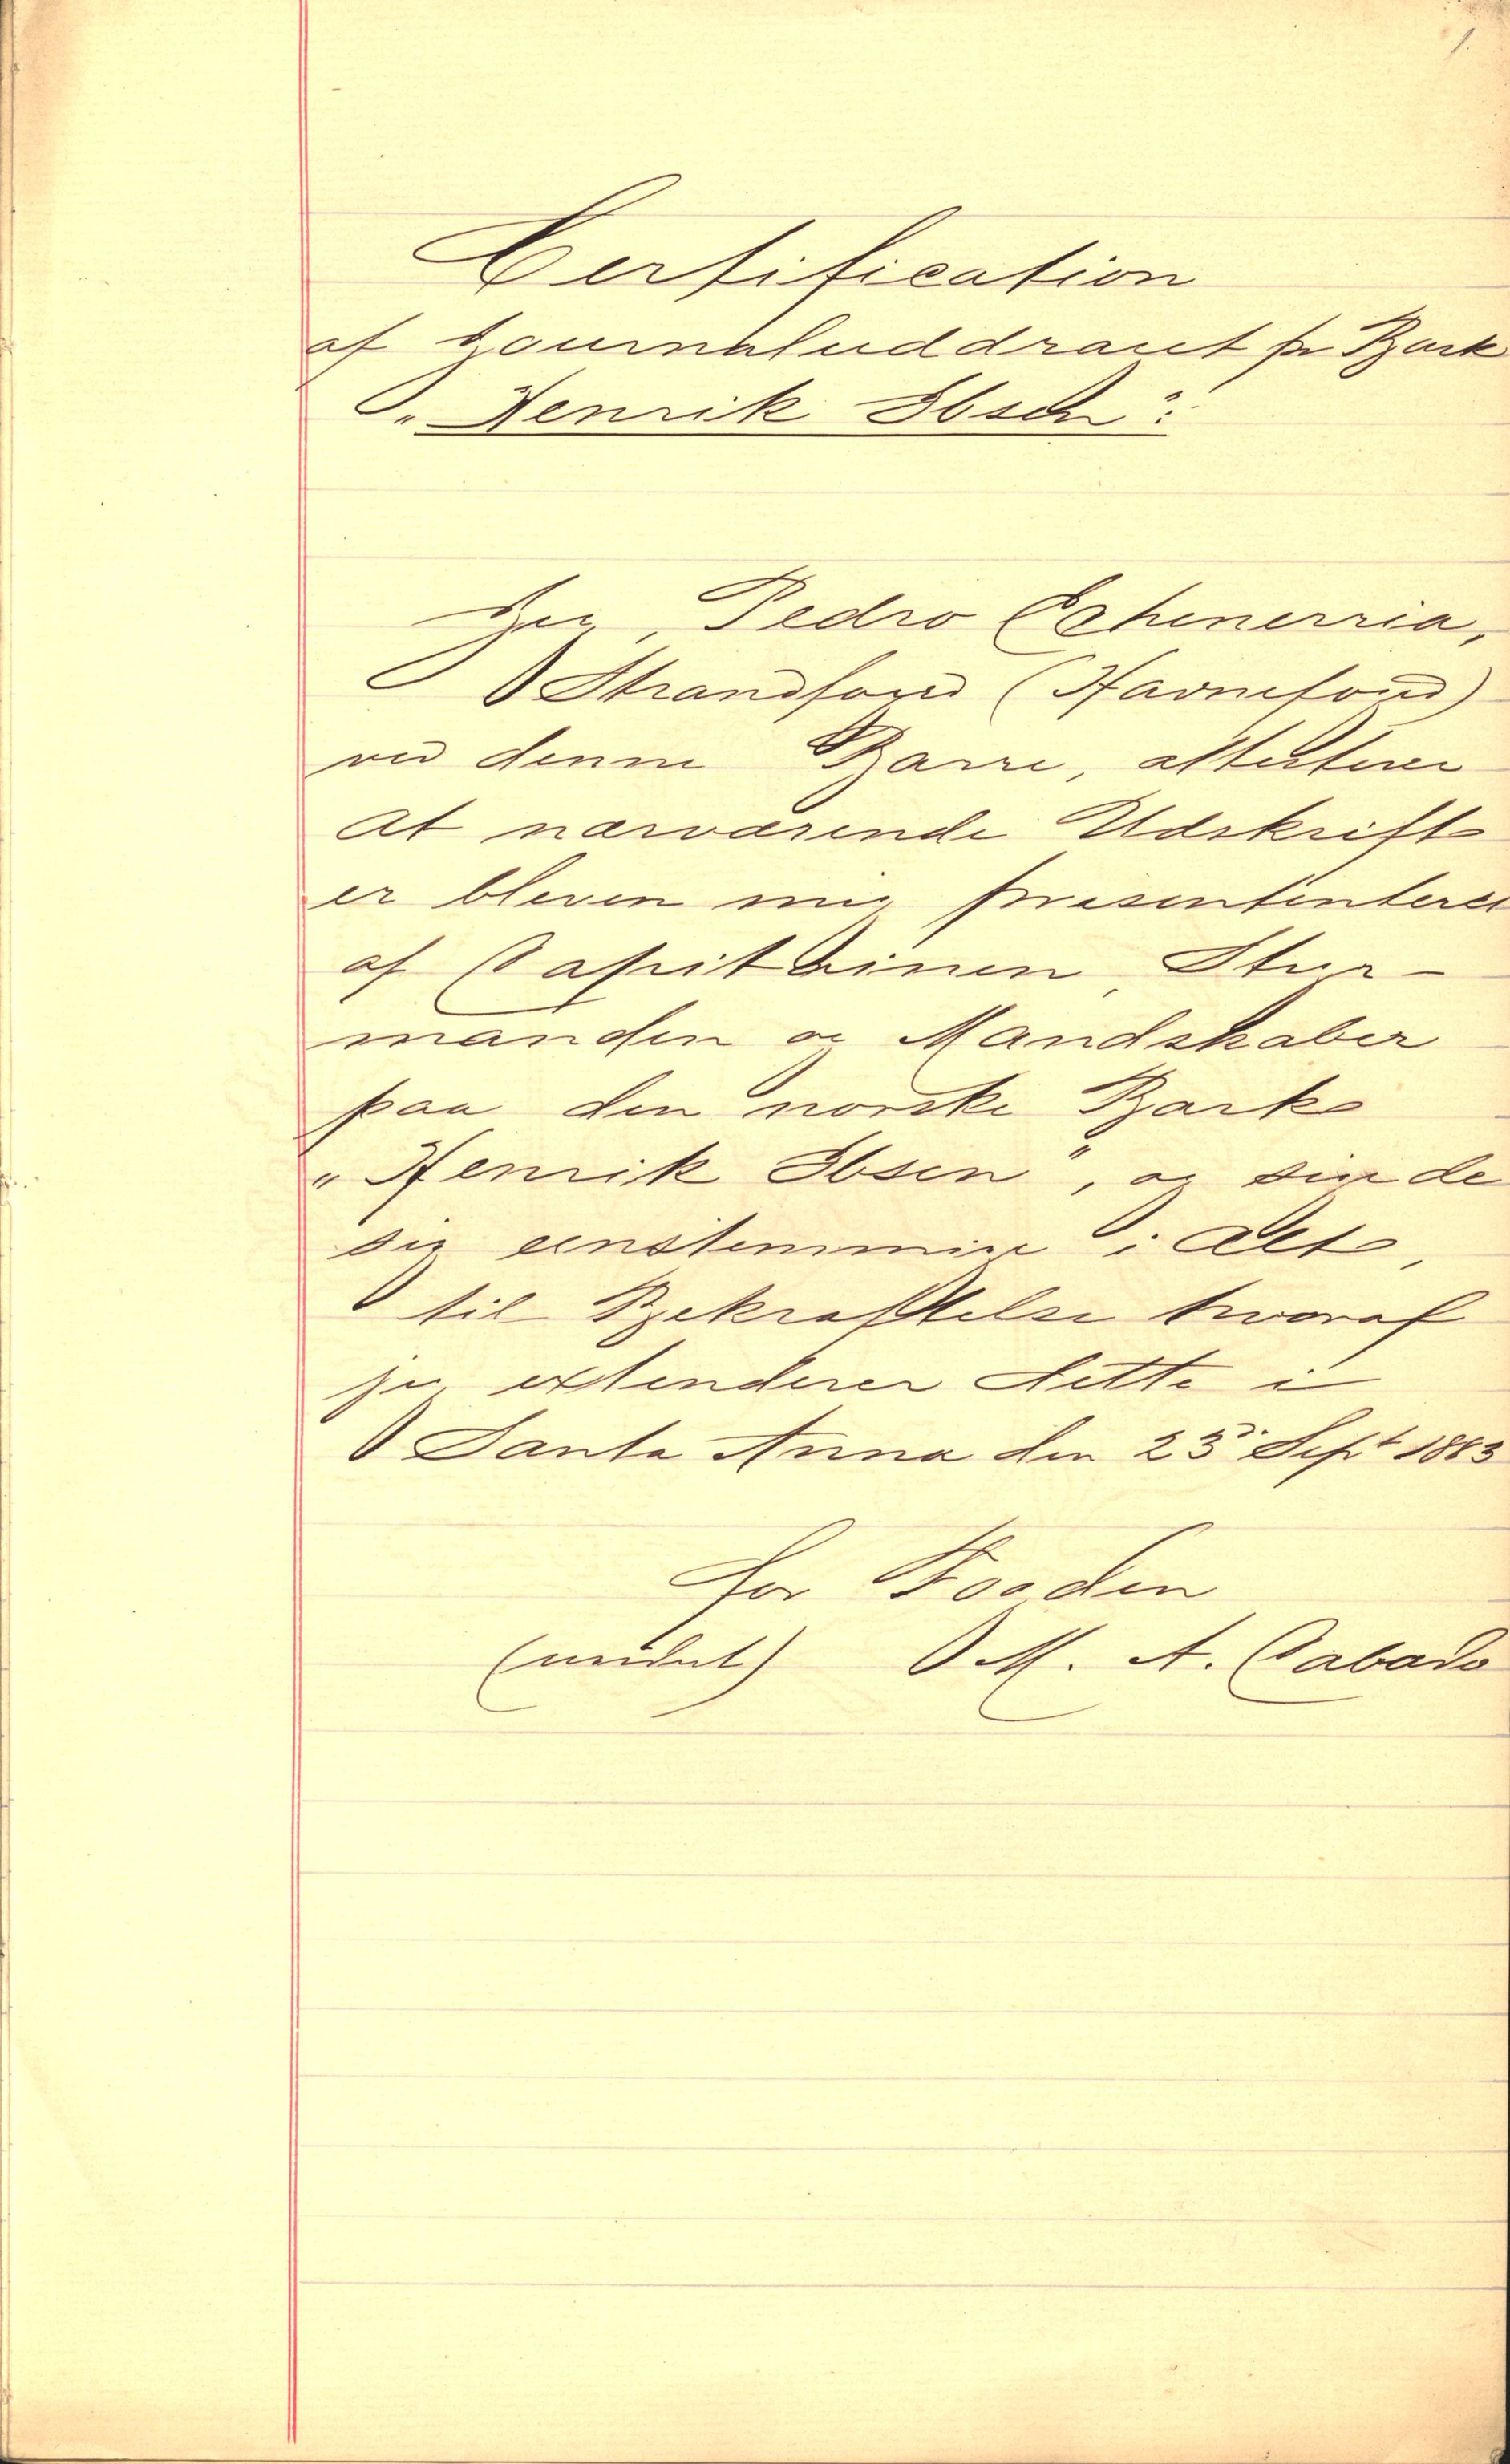 1.
Certification
af Journaluddraget pr Bark
„Henrik Ibsen":
Jeg, Pedro Echenerria,
Strandfoged (Havnefoged)
ved denne Barre, attesterer
at nærværende Udskrift
er bleven mig præsententeret
af Capitainen, Styr-
manden og Mandskaber
paa den norske Bark
„Henrik Ibsen", og sige de
sig eenstemmige i Alt,
til Bekræftelse hvoraf
jeg extenderer dette i
Santa Anna den 25 Sept 1883
for Fogden
M. A. Cabado